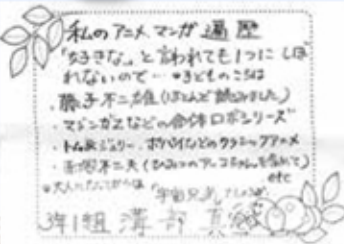 私のアニメ、マンガ遍歴
「好きな」と言われても1つにしぼ
れないので… *子どものころは
・藤子不二雄(ほとんど読みました)
・マジンガーZなどの合体ロボシリーズ
・トム&ジェリー、ポパイなどのクラシックアニメ
・赤塚不二夫(ひみつのアッコちゃんを含めて)
etc
*大人になってからは「宇宙兄弟」
3年1組 溝部 真